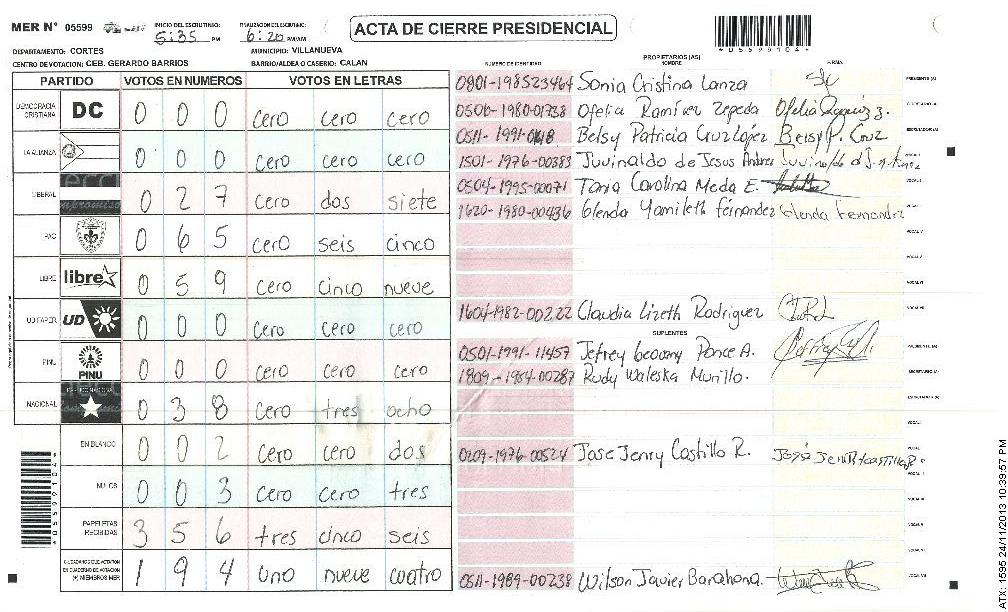 MER N° 05599 INICIO DEL ESCRUTINIO: 5:35 PM FINALIZACION DEL ESCRUTINIO: 6:20 PM/AM
ACTA DE CIERRE PRESIDENCIAL
*05599104*
DEPARTAMENTO: CORTES MUNICIPIO: VILLANUEVA
CENTRO DE VOTACION: CEB. GERARDO BARRIOS BARRIO/ALDEA O CASERIO: CALAN
NUMERO DE IDENTIDAD PROPIETARIOS (AS) NOMBRE FIRMA
PARTIDO VOTOS EN NUMEROS VOTOS EN LETRAS
DEMOCRACIA CRISTIANA DC 0 0 0 cero cero cero
LA ALIANZA 0 0 0 cero cero cero
LIBERAL 0 2 7 cero dos siete
PAC 0 6 5 cero seis cinco
LIBRE libre 0 5 9 cero cinco nueve
UD FAPER UD 0 0 0 cero cero cero
PINU PINU 0 0 0 cero cero cero
NACIONAL 0 3 8 cero tres ocho
EN BLANCO 0 0 2 cero cero dos
NULOS 0 0 3 cero cero tres
PAPELETAS RECIBIDAS 3 5 6 tres cinco seis
CIUDADANOS QUE VOTARON EN CUADERNO DE VOTACION (+) MIEMBROS MER 1 9 4 uno nueve cuatro
0801-198523464 Sonia Cristina Lanza PRESIDENTE (A)
0506-1980-01738 Ofelia Ramírez Zepeda SECRETARIO (A)
0511-1991- Belsy Patricia Cruz Lopez Belsy P. Cruz ESCRUTADOR (A)
1501-1976-00383 Juvinaldo de Jesus VOCAL I
0504-1995-00071 Tania Carolina Meda E. VOCAL II
1620-1980-00436 Glenda Yamileth férnandez Glenda Fernandez
VOCAL IV
VOCAL V
VOCAL VI
1604-1982-00222 Claudia Lizeth Rodriguez VOCAL VII
SUPLENTES
0501-1991-11457 Jefrey Geovany Ponce A. PRESIDENTE (A)
1809-1984-00287 Rudy Waleska Murillo. SECRETARIO (A)
ESCRUTADOR (A)
VOCAL I
0209-1976-00524 Jose Jenry Castillo R.
VOCAL V
VOCAL VI
0511-1989-00238 Wilson Javier Barahona. VOCAL VII
*05599104*
ATX: 1595 24/11/2013 10:39:57 PM